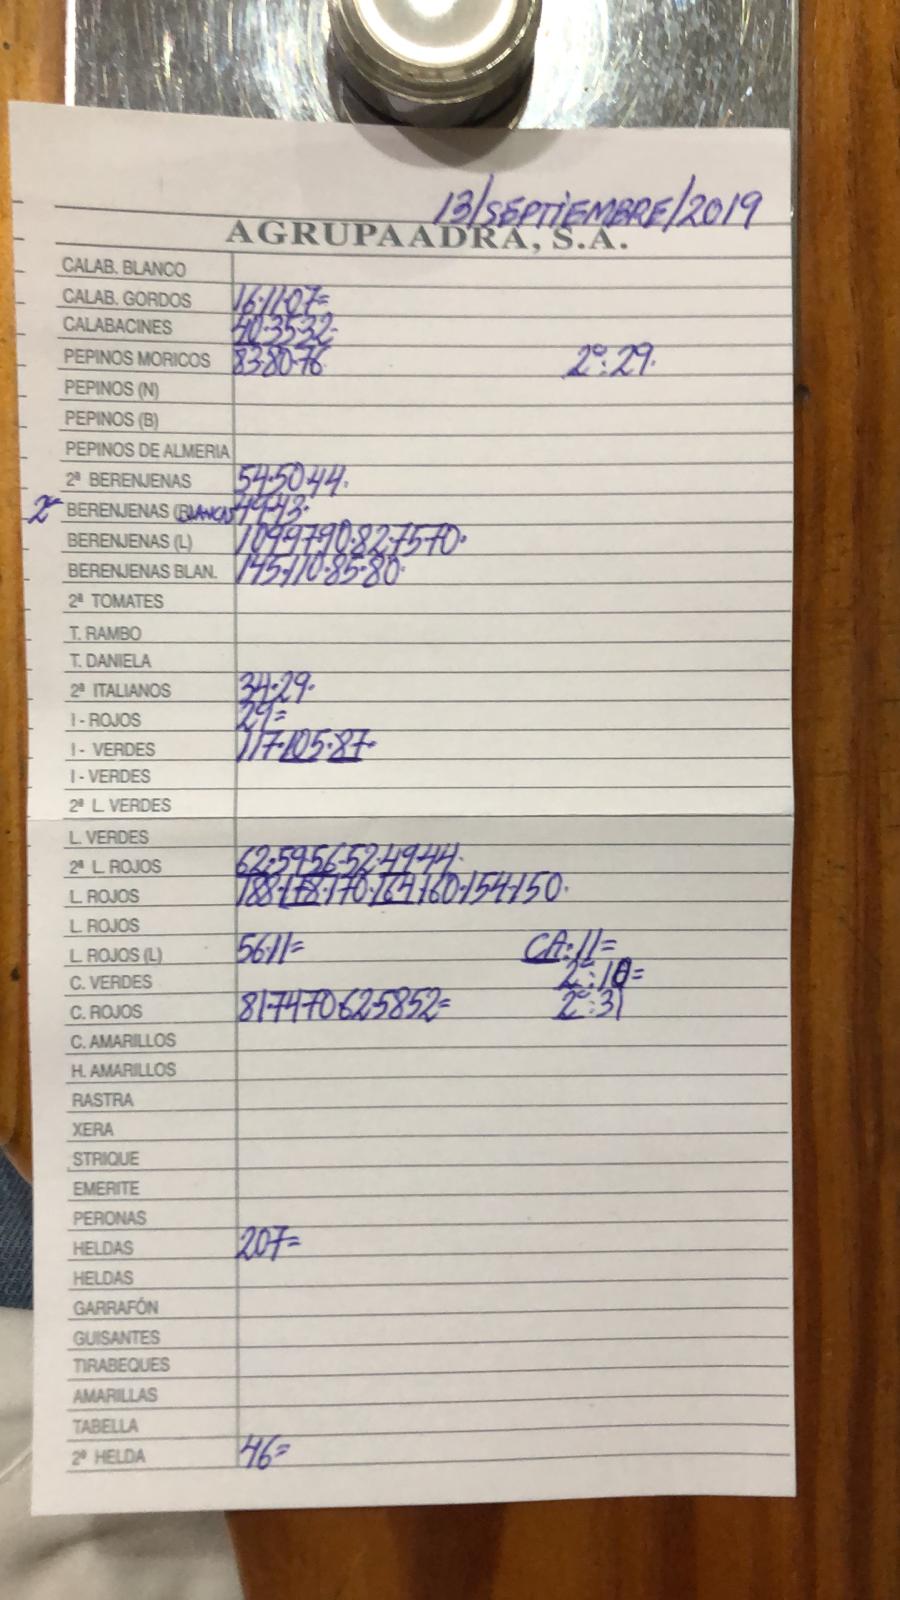 13/SEPTIEMBRE/2019
AGRUPAADRA, S.A.
CALAB. BLANCO
CALAB. GORDOS 16·11·07=
CALABACINES 40·35·32·
PEPINOS MORICOS 83·80·76 2ª:29·
PEPINOS (N)
PEPINOS (B)
PEPINOS DE ALMERIA
2ª BERENJENAS 54·50·44·
2ª BERENJENAS (BLANCAS 49·43·
BERENJENAS (L) 109·97·90·82·75·70·
BERENJENAS BLAN. 145·110·85·80·
2ª TOMATES
T. RAMBO
T. DANIELA
2ª ITALIANOS 34·29·
I - ROJOS 29=
I - VERDES 117·105·87·
I - VERDES
2ª L. VERDES
L. VERDES
2ª L. ROJOS 62·59·56·52·49·44·
L. ROJOS 188·178·170·164·160·154·150·
L. ROJOS
L. ROJOS (L) 56·11= CA:11=
C. VERDES 2ª:10=
C. ROJOS 81·74·70·62·58·52= 2ª:31
C. AMARILLOS
H. AMARILLOS
RASTRA
XERA
STRIQUE
EMERITE
PERONAS
HELDAS 207=
HELDAS
GARRAFÓN
GUISANTES
TIRABEQUES
AMARILLAS
TABELLA
2ª HELDA 46=